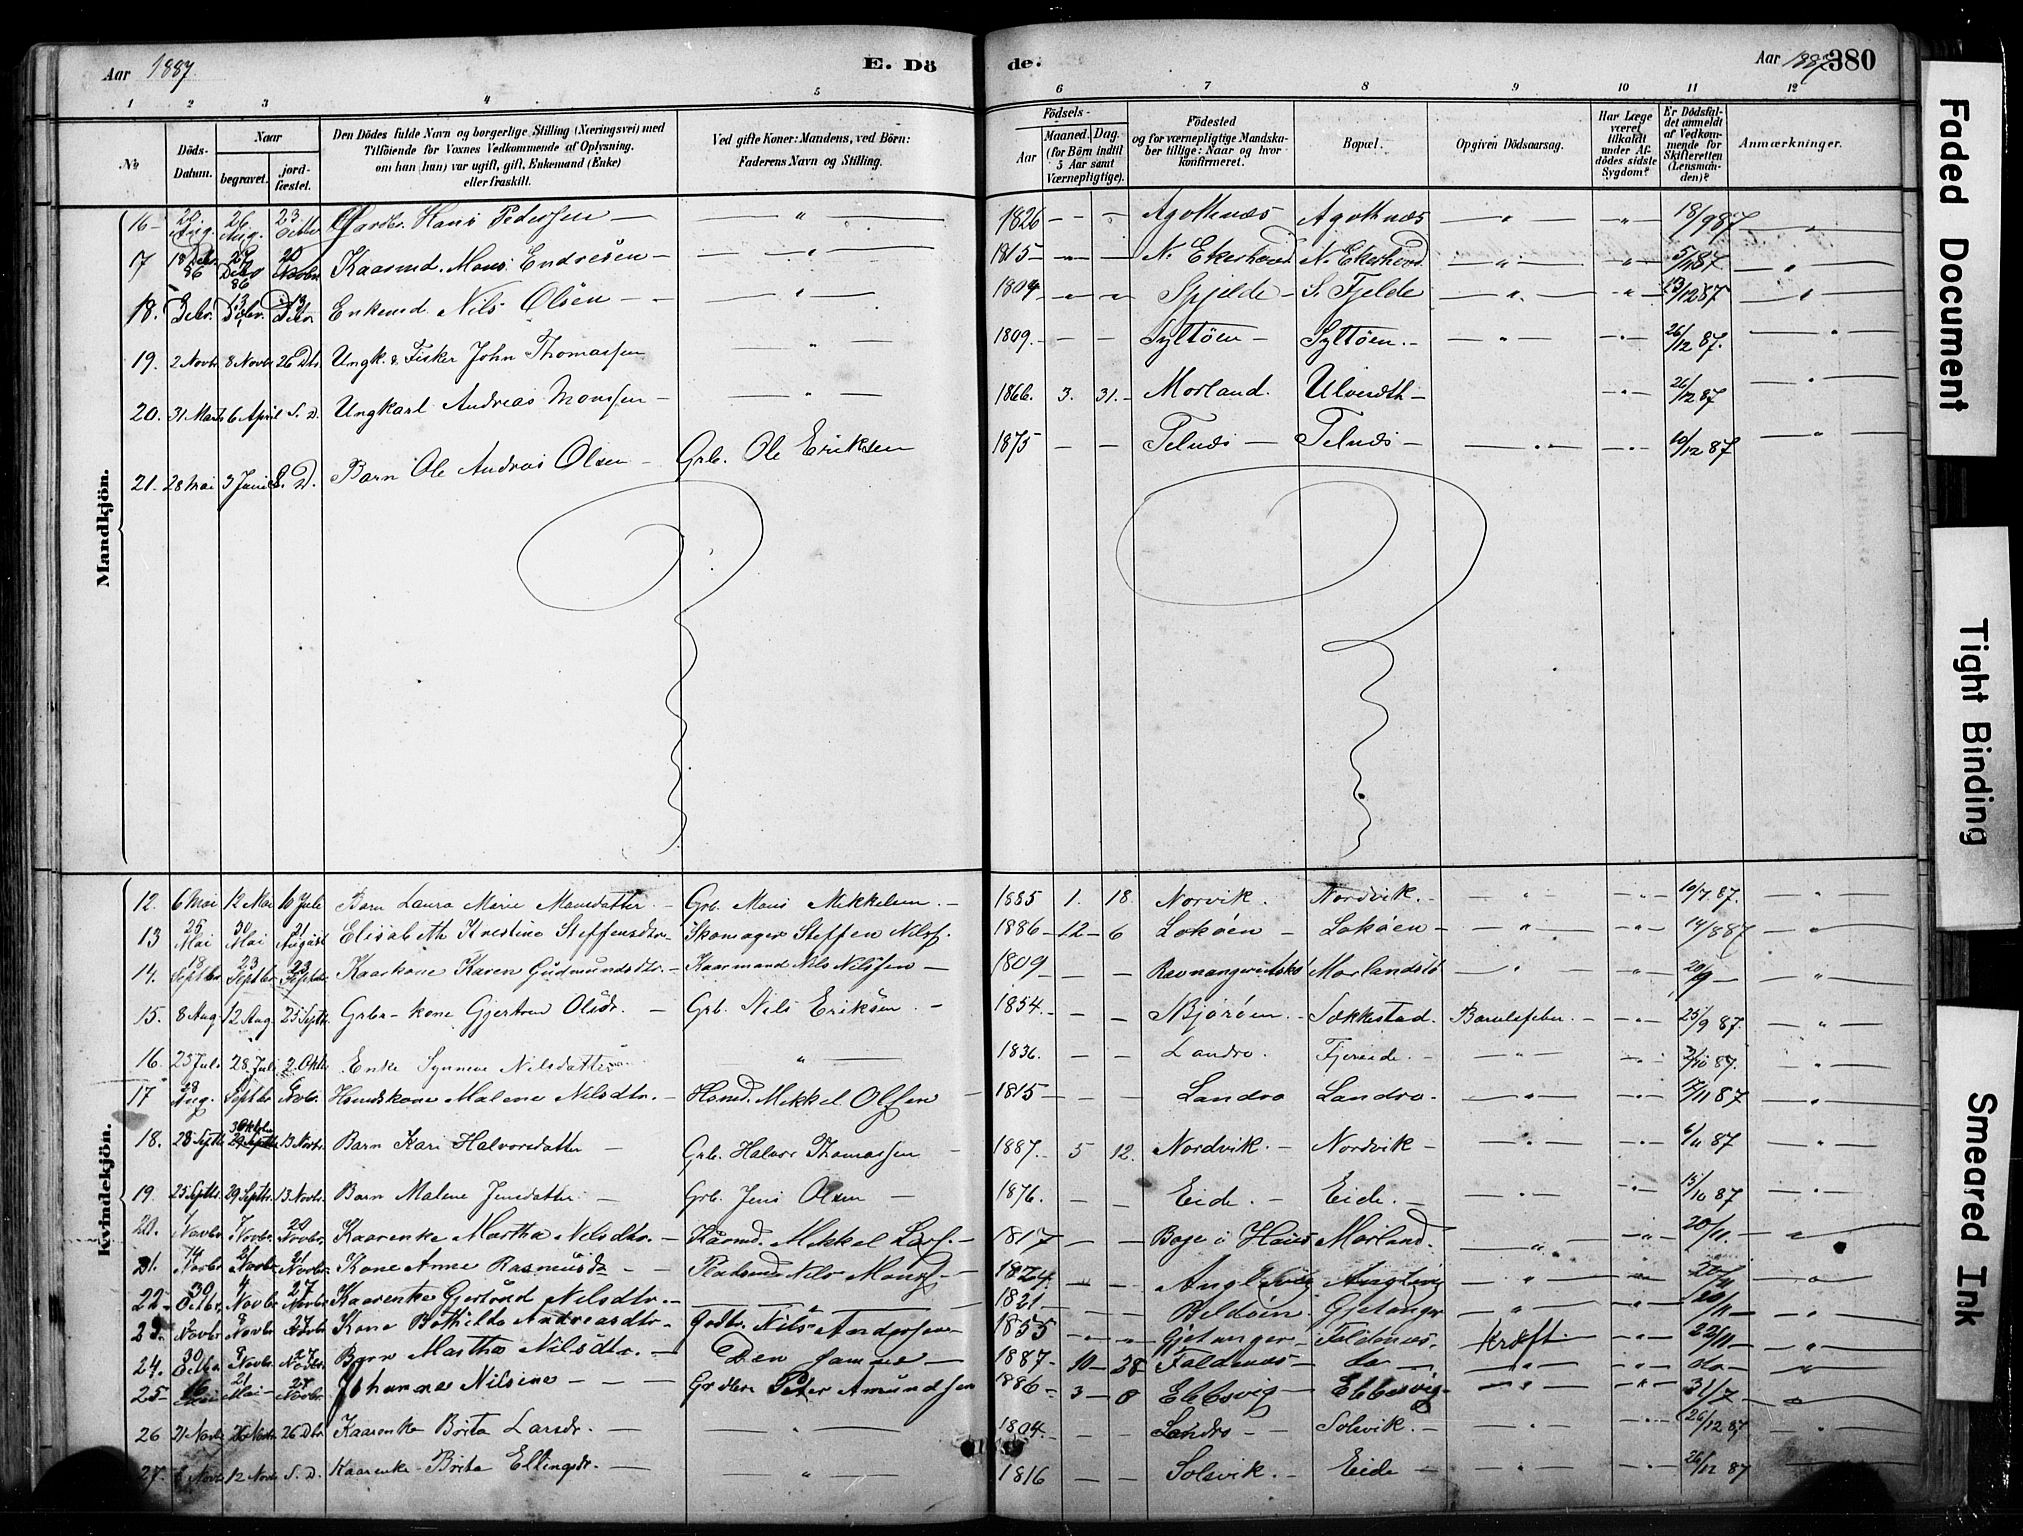 Aar 1887 E. Dö
de. Aar 1887 380
1 2 3 4 5 6 7 8 9 10 11 12
No
Döds-Datum.
Naar
begravet.
jord-fæstet.
Den Dödes fulde Navn og borgerlige Stilling (Næringsvei) med
Tilföiende for Voxnes Vedkommende af Oplysning.
om han (hun) var ugift, gift, Enkemand (Enke)
eller fraskilt.
Ved gifte Koner: Mandens, ved Börn:
Faderens Navn og Stilling.
Födsels-
Aar
Maaned. Dag.
(for Börn indtil
5 Aar samt
Værnepligtige).
Födested
og for værnepligtige Mandska-
ber tillige: Naar og hvor
konfirmeret.
Bopæl.
Opgiven Dödsaarsag.
Har Læge
været
tilkaldt
under Af-
dödes sidste
Sygdom?
Er Dödsfal-
det anmeldt
af Vedkom-
mende for
Skifteretten
(Lensman-
den)?
Anmærkninger.
Mandkjön.
16 Aug. 26 Aug. 23 Hans Pedersen — " — 1826 - - Agotnæs Agotnæs — " — " 18/9 87 "
17 18 Decbr. 86 Decbr 86 20 Novbr Kaarmd. Mons Endresen — " — 1815 - - N. Ekerhovd N. Ekerhovd — " — " 87 "
18. Debr. Debr. 13 Debr Enkemd. Nils Olsen — " — 1804 - - Spjelde S. Fjelde — " — " 13/12 87 "
19. 2 Novbr 8 Novbr 26 Dbr Ungk. & Fisker John Thomassen — " — 1809. - - Syltöen Syltöen. — " — " 26/12 87. "
20. 31 Marts 6 April S. D. Ungkarl Andreas Monssen — " — 1866. 3. 31. Morland. " 26/12 87 "
21. 28 Mai 3 Juni S. D. Barn Ole Andreas Olsen Grb. Ole Eriksen 1875 - - Telnæs Telnæs — " — " 10/12 87 "
Kvindekjön.
12. 6 Mai 12 Mai 10 Juli Barn Laura Marie Monsdatter Grb. Mons Mikkelsen. 1885 1. 18. Norvik. Nordvik. " " 10/7 87. "
13 25 Mai 30 Mai 21 August Elisabeth Kristine Steffensdtr. Skomager Steffen Nilsf. 1886 12 6 Loköen Loköen " " 14/8 87 "
14. 18 Septbr 23 Septbr 23 Septbr Kaarkone Karen Gudmundsdtr. Kaarmand Nils Nilssen 1809 - - Morlandstö " " 20/9 "
15. 8 Aug 12 Aug. 25 Septbr. Grbr-kone Gjertrud Olsdr. Grb. Nils Eriksen. 1854. - - Björöen Sækkestad. Barselfeber. " 25/9 87. "
16 23 Juli 28 Juli 2 Oktbr Enke Synneve Nilsdatter " 1836. - - Landro. " " 2/10 87. "
17 28 Aug. Septbr Novbr. Husmdskone Malene Nilsdtr. Husmd. Mikkel Olsen 1815 - - Landro Landro. " " 87 "
18. 28 Septbr 3 Oktober 29 Septbr 13 Novbr. Barn Kari Halvorsdatter Grb. Halvor Thomassen 1887. 5 12. Nordvik. Nordvik " " 6/11 87 "
19. 25 Septbr. 29 Septbr. 13 Novbr. Barn Malene Jensdatter Grb. Jens Olsen 1876. - - Eide. Eide. " " 15/10 87 "
20. 1 Novbr 7 Novbr. 20 Novbr. Kaarenke Martha Nilsdtr. Kaarmd. Mikkel Larss. 1817 - - Boge i Haus Morland. " " 20/11. "
21. 14 Novbr 21 Novbr 21 Novbr. Kone Anne Rasmusdr Pladsmd Nils Monss. 1824. - - " " "
22. 30 Octbr. 4 Novbr. 27 Novbr. Kaarenke Gertrud Nilsdtr. " 1821 - - Beldöen Gjetanger " " 20/11 "
23. 2 Novbr 8 Novbr. 27 Novbr Kone Bothilde Andreasdtr. Gaardbr. Nils Anderssen 1855 - - Gjetanger Foldenæs. Kræft " 22/11 "
24. 30 Octbr 8 Novbr. 27 Novbr. Barn Martha Nilsdtr. Den samme 1887. 10 28 Foldenæs do " " do "
25 16 Mai 21 Mai 27 Novbr. Johanne Nilsine Grdbr. Peter Amundsen 1886 3 8 Ebbesvig Ebbesvig " " 31/7 "
26 21 Novbr 26 Novbr. 26 Dbr. Kaarenke Brita Larsdr. " 1804. - - Landro Solsvik. " " 26/12 87 "
27. 6 Novbr 12 Novbr S. D. Kaarenke Brita Ellingsdr. " 1816 - - Solsvik. Eide " " 26/12 87 "
Faded Document
Tight Binding
Smeared Ink